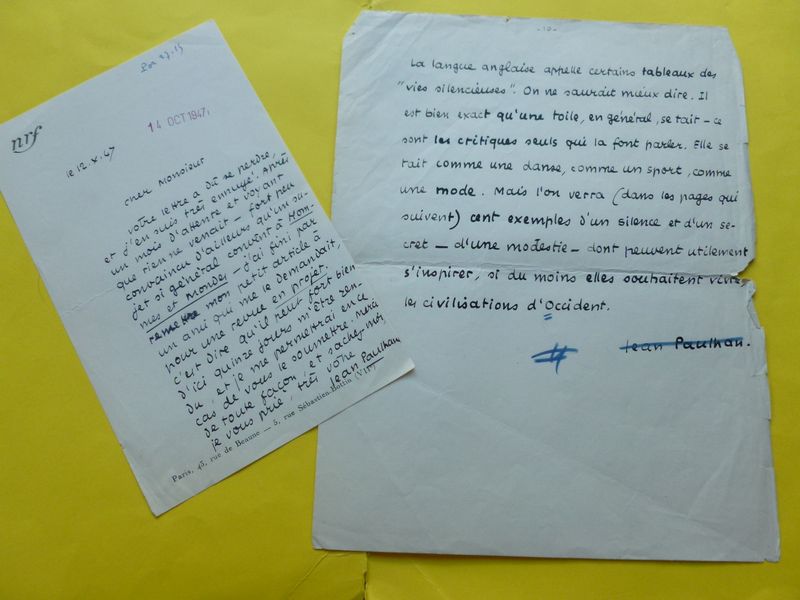 nrf
14 OCT 1947
le 12.X.47
Cher Monsieur
votre lettre a dû se perdre,
et j'en suis très ennuyé. Après
un mois d'attente et voyant
que rien ne venait – fort peu
convaincu d'ailleurs qu'un su-
jet si général convînt à Hom-
mes et Mondes – j'ai fini par
remettre mon petit article à
un ami qui me le demandait,
pour une revue en projet.
c'est dire qu'il peut fort bien
d'ici quinze jours m'être ren-
du, et je me permettrai en ce
cas de vous le soumettre. Merci
de toute façon, et sachez moi,
je vous prie, très vôtre
Jean Paulhan
Paris, 43, rue de Beaune — 5, rue Sébastien-Bottin (VIIe)
- 10 -
La langue anglaise appelle certains tableaux des
"vies silencieuses". On ne saurait mieux dire. Il
est bien exact qu'une toile, en général, se tait – ce
sont les critiques seuls qui la font parler. Elle se
tait comme une danse, comme un sport, comme
une mode. Mais l'on verra (dans les pages qui
suivent) cent exemples d'un silence et d'un se-
cret – d'une modestie – dont peuvent utilement
s'inspirer, si du moins elles souhaitent vivre,
les civilisations d'Occident.
Jean Paulhan.